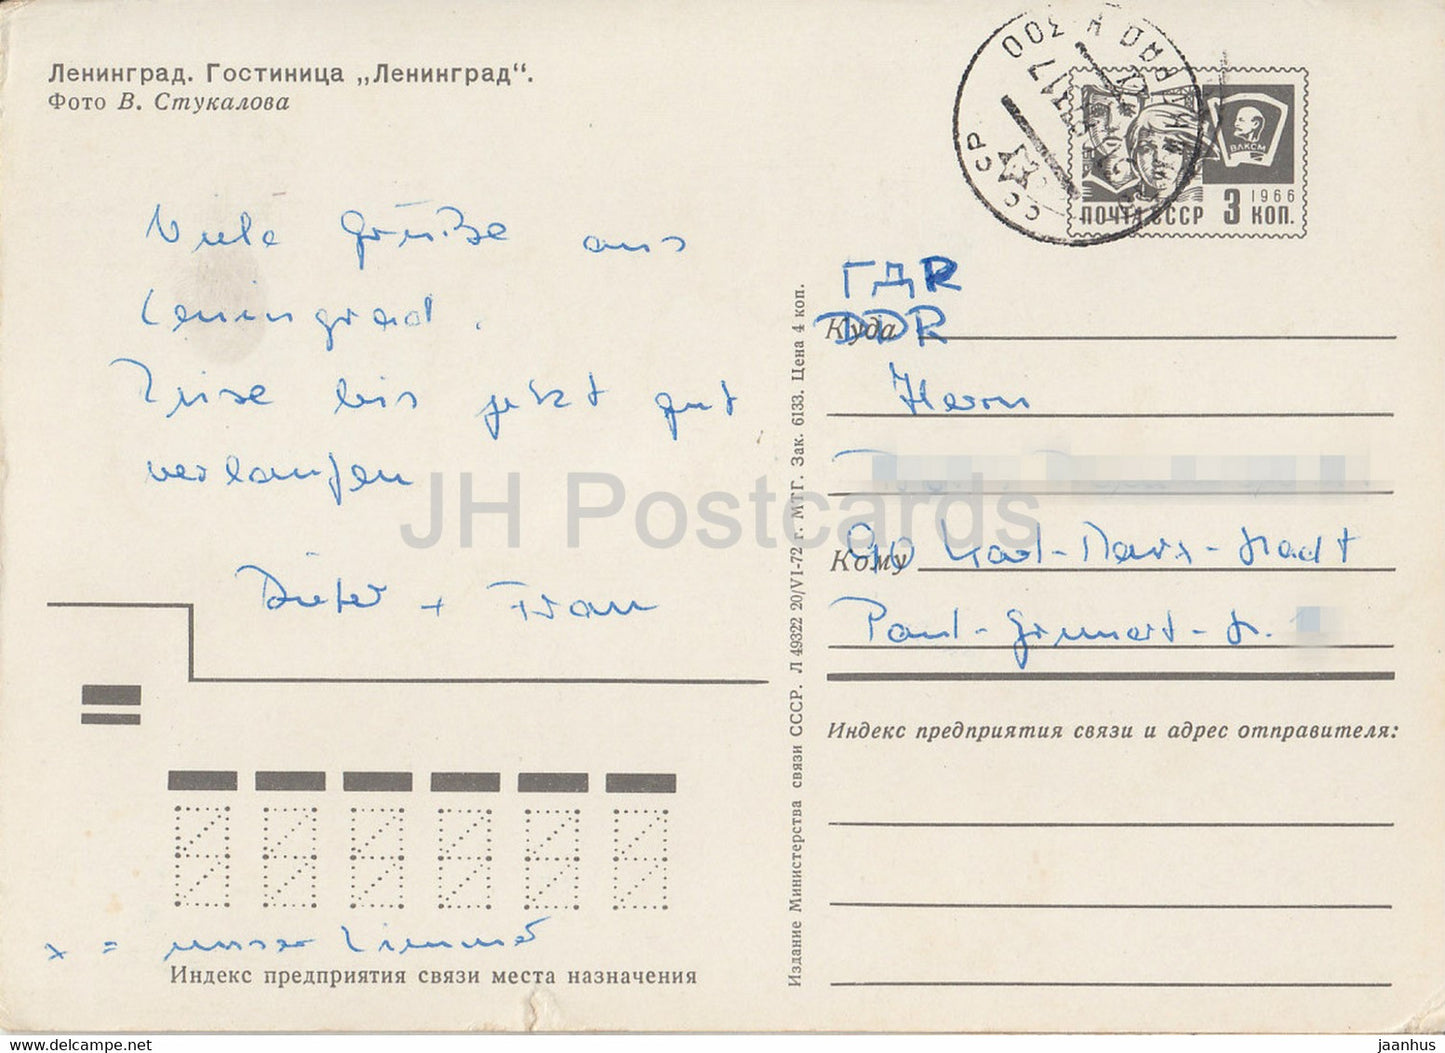 Ленинград. Гостиница „Ленинград“.
Фото В. Стукалова
Viele Grüße aus
Leningrad.
Reise bis jetzt gut
verlaufen
Dieter + Frau
x = unser Zimmer
Индекс предприятия связи места назначения
Издание Министерства связи СССР. Л 49322 20/VI-72 г. МТГ. Зак. 6133. Цена 4 коп.
СССР
ПОЧТА СССР 3 КОП.
1966
ВЛКСМ
ГДR
DDR
Куда
Herrn
Кому
90 Karl-Marx-Stadt
Paul-Grunert-Str.
Индекс предприятия связи и адрес отправителя:
JH Postcards
hippostcard.com
jaanhus